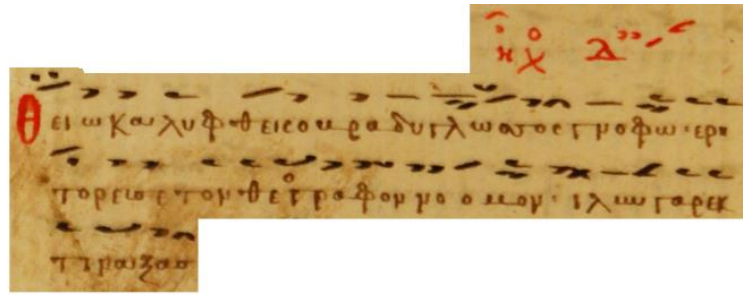 ηχο Δ
Θειω καλυφθεις ο βραδυγλωσσος γνοφω· ερη
τορευσε τον θεογραφον νομον· ιλυν γαρ εκ
τιναξας